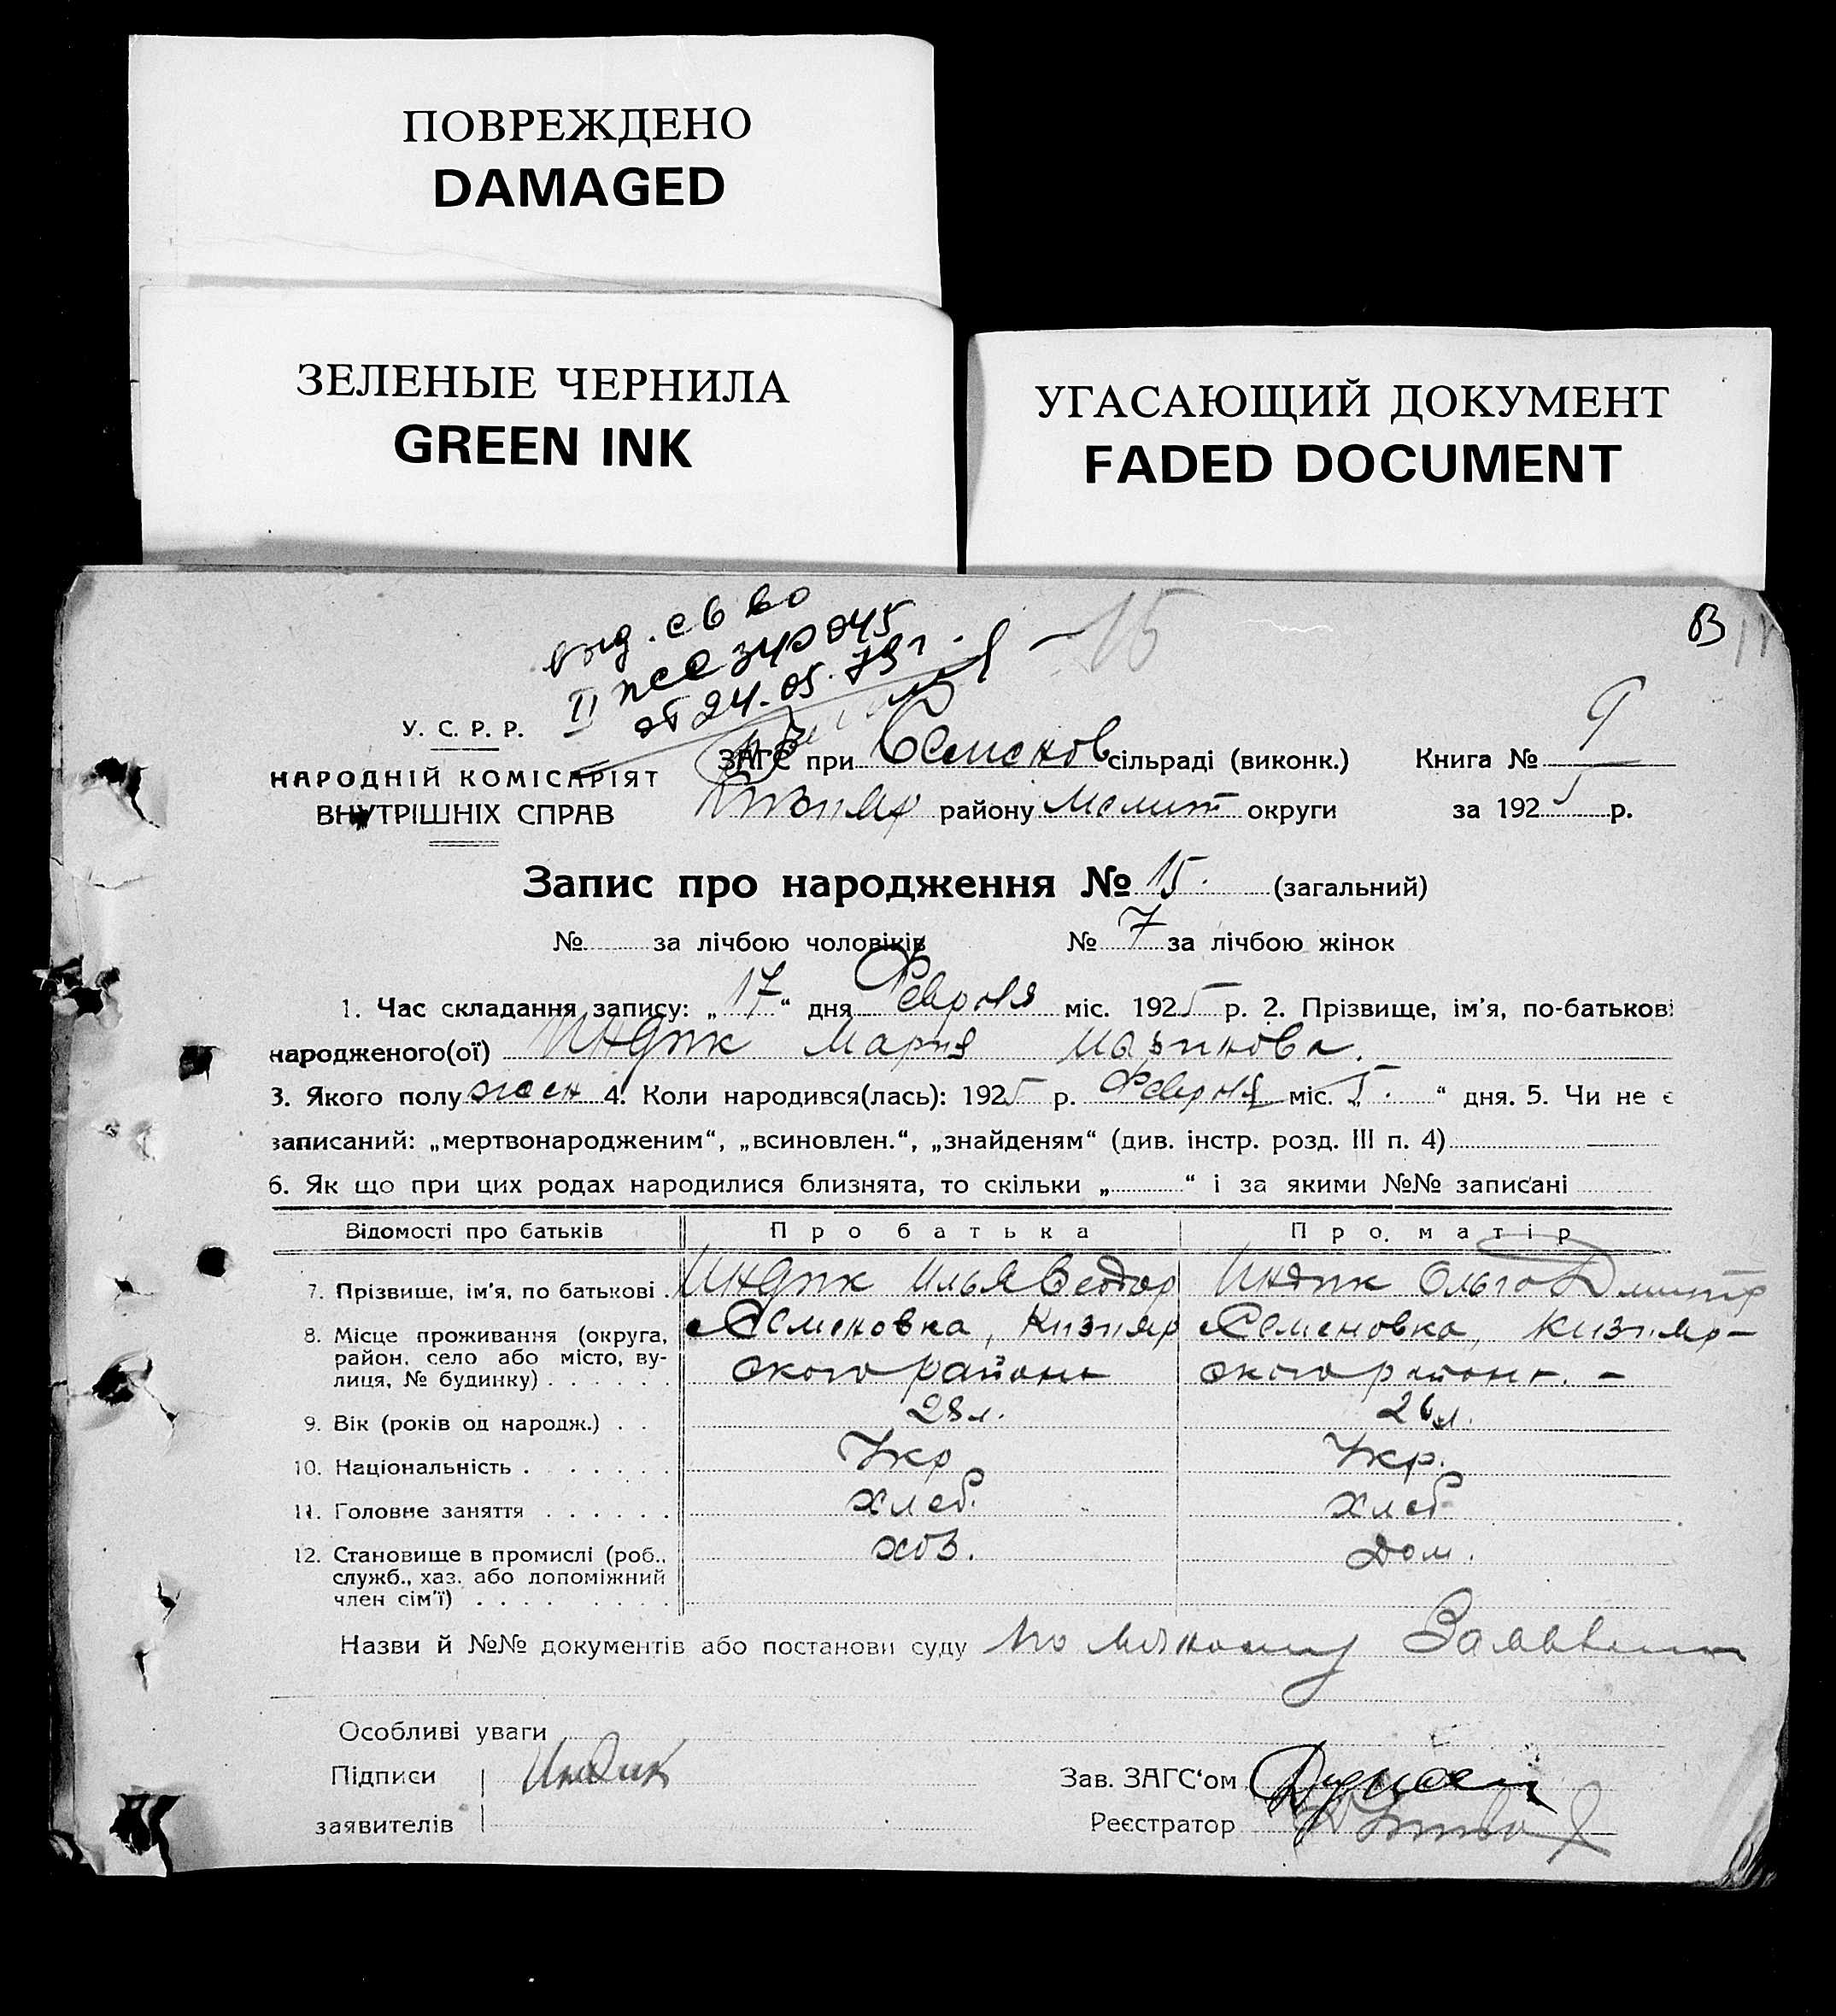 ПОВРЕЖДЕНО
DAMAGED
ЗЕЛЕНЫЕ ЧЕРНИЛА
GREEN INK
УГАСАЮЩИЙ ДОКУМЕНТ
FADED DOCUMENT
выд. св во
II ПСС 340045
от 24.05.79г.
15
У. С. Р. Р.
НАРОДНІЙ КОМІСАРІЯТ
ВНУТРІШНІХ СПРАВ
ЗАГС при Семенов сільраді (виконк.)
Кизияр району Мелит округи
Книга № 9
за 1925 р.
Запис про народження № 15. (загальний)
№ за лічбою чоловіків № 7 за лічбою жінок
1. Час складання запису: „17“ дня Февраля міс. 1925 р. 2. Прізвище, ім'я, по-батькові
народженого(ої) Индик Мария
3. Якого полу жен 4. Коли народився(лась): 1925 р. Февраля міс. „5.“ дня. 5. Чи не є
записаний: „мертвонародженим“, „всиновлен.“, „знайденям“ (див. інстр. розд. III п. 4)
6. Як що при цих родах народилися близнята, то скільки „ “ і за якими №№ записані
Відомості про батьків Про батька Про матір
7. Прізвище, ім'я, по батькові . Индик Илья Феодор Индик Ольга Дмитр
8. Місце проживання (округа, район, село або місто, вулиця, № будинку) . . . . . . Семеновка, Кизияр ского района Семеновка, Кизияр- ского района. -
9. Вік (років од народж.) . . 28 л. 26 л.
10. Національність . . . . . . . Укр Укр.
11. Головне заняття . . . . . . хлеб. хлеб
12. Становище в промислі (роб., служб., хаз. або допоміжний член сім'ї) . . . . . . . . хоз. дом.
Назви й №№ документів або постанови суду По личному
Особливі уваги
Підписи Индик
заявителів
Зав. ЗАГС'ом
Реєстратор